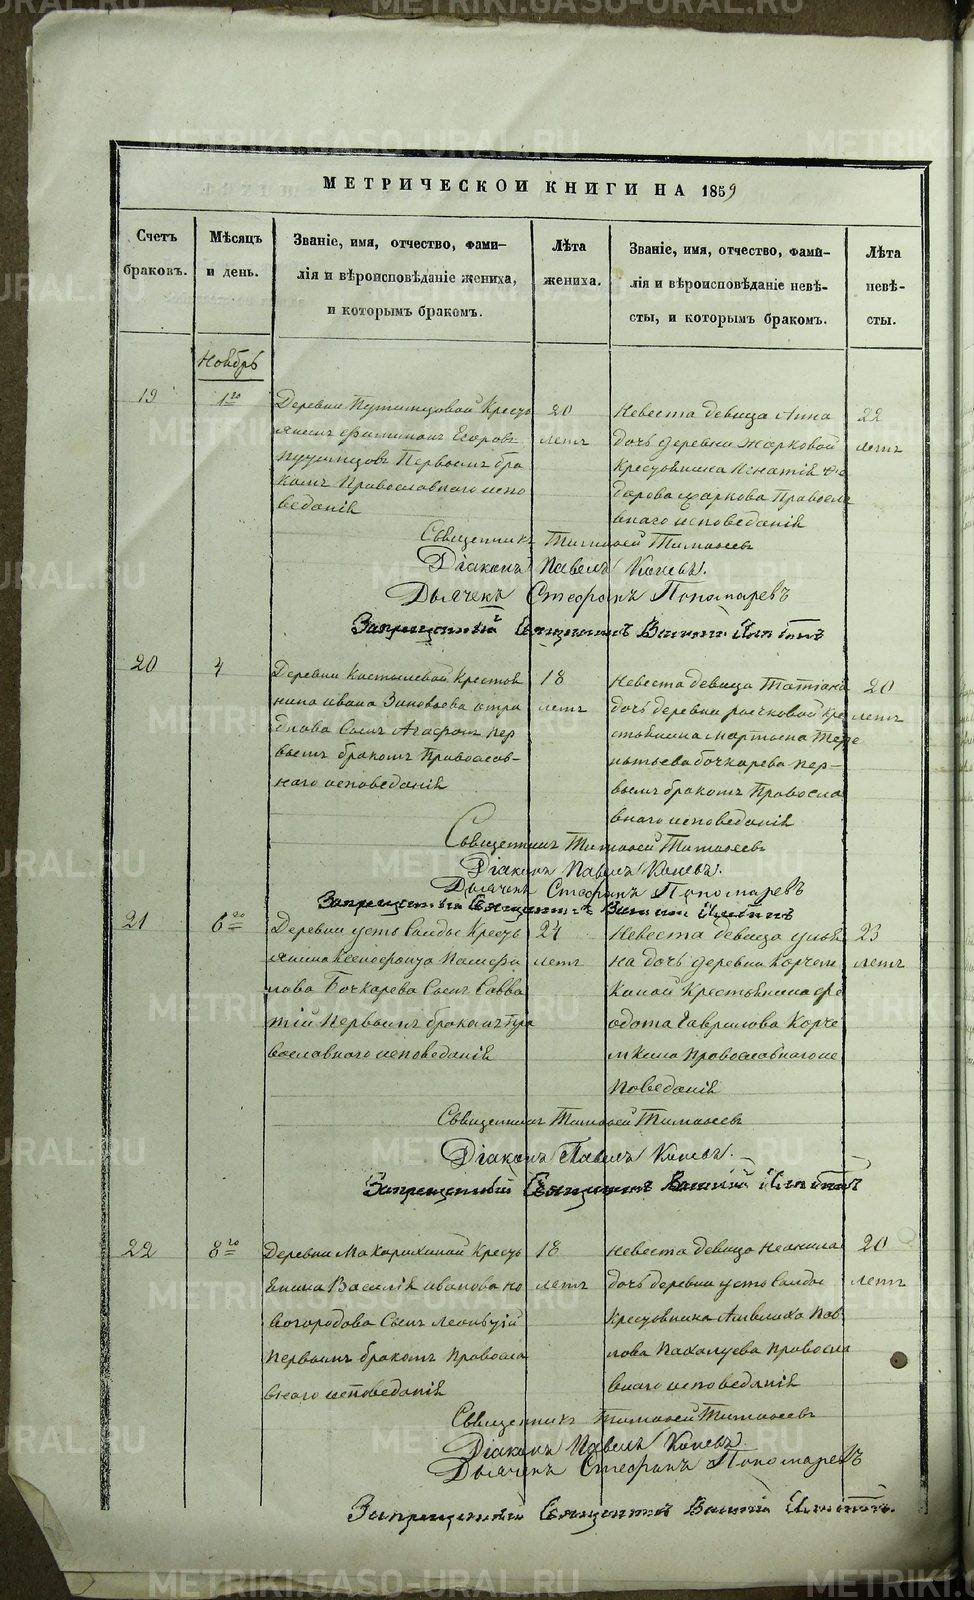 МЕТРИЧЕСКОЙ КНИГИ НА 1859
Счетъ браковъ.
Мѣсяцъ и день.
Званіе, имя, отчество, фами-
лія и вѣроисповѣданіе жениха,
и которымъ бракомъ.
Лѣта жениха.
Званіе, имя, отчество, фами-
лія и вѣроисповѣданіе невѣ-
сты, и которымъ бракомъ.
Лѣта невѣ-
сты.
Ноябрь
19
1го
Деревни Путимцовой Кресть
янинъ Егоровъ
Путимцовъ Первымъ бра
комъ Православнаго испо
веданія
20
летъ
Невеста девица Анна
дочь деревни Жарковой
крестьянина Игнатія Фе
дорова Жаркова Правосла
внаго исповеданія
22
летъ
Священникъ Тимофей Тимофеевъ
Діаконъ Павелъ Коневъ.
Дьячекъ Стефанъ Пономаревъ
Запрещенный Священникъ
20
4
Деревни Костылевой крестья
нина Ивана Зиновьева
Сынъ Агафонъ пер
вымъ бракомъ Православ-
наго исповеданія
18
летъ
Невеста девица Татіана
дочь деревни кре
стьянина Мартына Тере
нтьева Бочкарева пер-
вымъ бракомъ Правосла
внаго исповеданія
20
летъ
Священникъ Тимофей Тимофеевъ
Діаконъ Павелъ Коневъ.
Дьячекъ Стефанъ Пономаревъ
Запрещенный Священникъ
21
6го
Деревни усть Салды кресть
янина Ксенофонта Памфи
лова Бочкарева Сынъ Савва
тій Первымъ бракомъ Пра
вославнаго исповеданія
24
летъ
Невеста девица Улья
на дочь деревни Корчем
киной Крестьянина Фе
одота Гаврилова Корче
мкина Православнаго ис
поведанія
23
летъ
Священникъ Тимофей Тимофеевъ
Діаконъ Павелъ Коневъ.
Запрещенный Священникъ
22
8го
Деревни Махарихиной кресть
янина Василія Иванова но
вогородова Сынъ Леонтій
Первымъ бракомъ Правосла
внаго исповеданія
18
летъ
Невеста девица Неонила
дочь деревни усть Салды
крестьянина Пав
лова Пахалуева Правосла
внаго исповеданія
20
летъ
Священникъ Тимофей Тимофеевъ
Діаконъ Павелъ Коневъ.
Дьячекъ Стефанъ Пономаревъ
Запрещенный Священникъ
METRIKI.GASO-URAL.RU